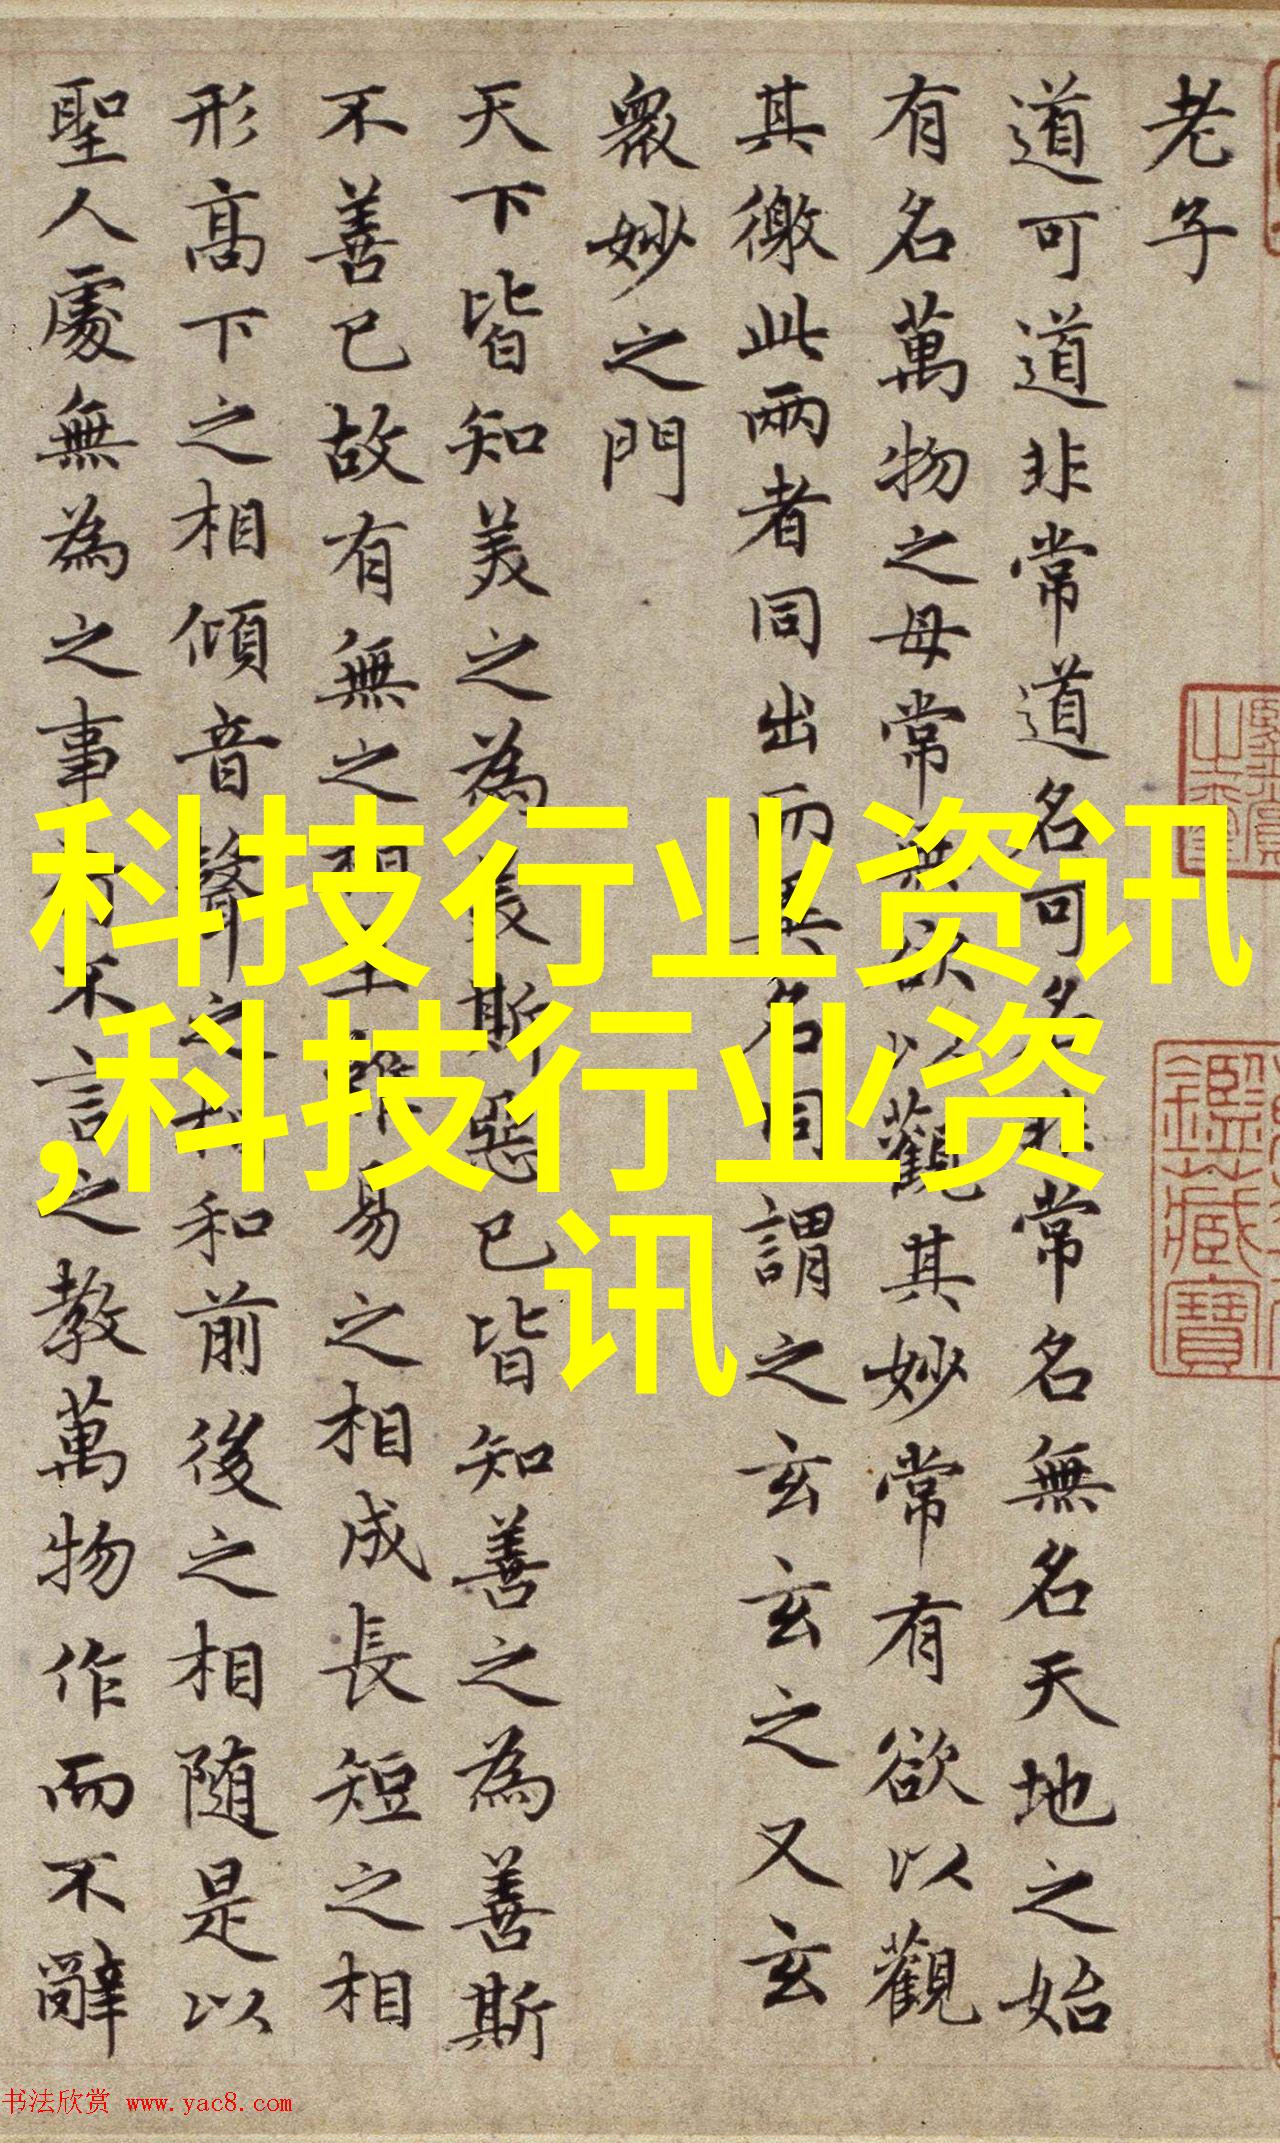 老子
道可道非常道名可名非常名無名天地之始
有名萬物之母常無欲以觀其妙常有欲以觀
其徼此兩者同出而異名同謂之玄玄之又玄
衆妙之門
天下皆知美之為美斯惡已皆知善之為善斯
不善已故有無之相生難易之相成長短之相
形高下之相傾音聲之相和前後之相随是以
聖人處無為之事行不言之教萬物作而不辭
科技行业资讯
,科技行业资
讯
鑑藏寶
书法欣赏 www.yac8.com